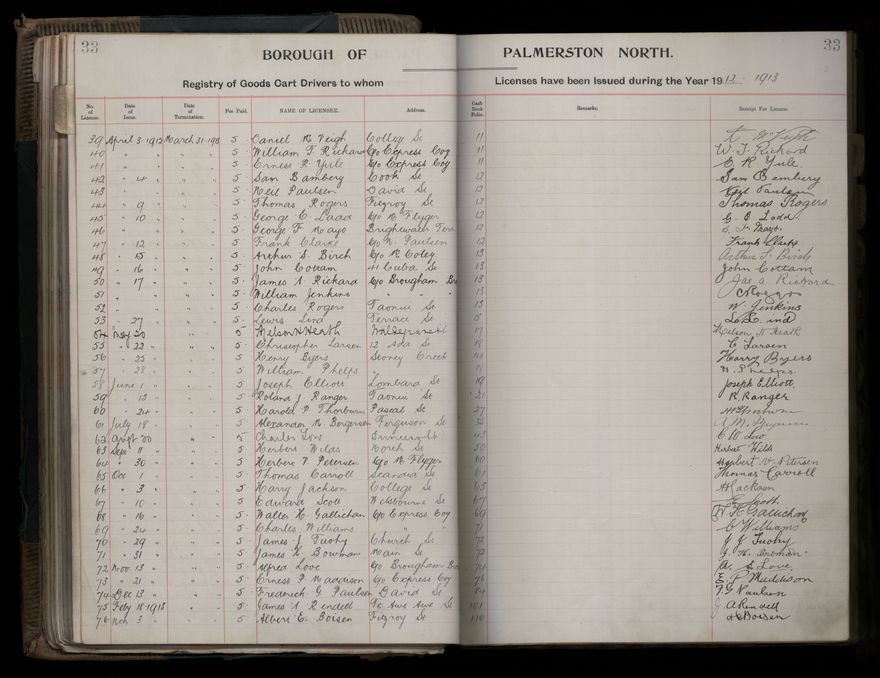 33
33
BOROUGH OF PALMERSTON NORTH.
Registry of Goods Cart Drivers to whom Licenses have been Issued during the Year 1912 - 1913
No. of License. Date of Issue. Date of Termination. Fee Paid. NAME OF LICENSEE. Address. Cash Book Folio. Remarks. Receipt For License.
39 April 3 1912 March 31-1913 5 - Daniel K Veigh College St 11
40 " " " " 5 - William T. Rickard C/o Express Coy 11 W. T. Rickard
41 " " " " 5 - Ernest R Yule C/o Express Coy 11 E. R Yule.
42 " 4 " " " 5 - Sam Bambery Cook St 12 Sam Bambery
43 " " " " 5 - Neil Paulsen David St 12 Neil Paulsen
44 " 9 " " " 5 - Thomas Rogers Fitzroy St 12 Thomas Rogers
45 " 10 " " " 5 - George E. Ladd C/o N Flyger 12 G E Ladd
46 " " " " 5 - George F Mayo Brightwater Terr 12 G. F. Mayo
47 " 12 " " " 5 - Frank Clarke C/o N. Paulsen 12 Frank Clarke
48 " 15 " " " 5 - Arthur S. Birch C/o R Coley 13 Arthur S. Birch
49 " 16 " " " 5 - John Cottam 41 Cuba St 13 John Cottam
50 " 17 " " " 5 - James A Rickard C/o Brougham 13 Jas a Rickard
51 " " " " 5 - William Jenkins " " 13 C Rogers
52 " " " " 5 - Charles Rogers Taonui St 13 W. Jenkins
53 " 27 " " " 5 - Lewis Lind Terrace St 15
54 May 20 " " 5 - Nelson H Heath 17 Nelson H Heath
55 " 22 " " " 5 - Christopher Larsen 12 Ada St 18 C Larsen
56 " 25 " " " 5 - Henry Byers Stoney Creek Harry Byers
57 " 28 " " " 5 - William Phelps " W. Phelps
58 June 1 " " 5 - Joseph Elliott Lombard St 19 Joseph Elliott.
59 " 13 " " " 5 - Roland J. Ranger Taonui St 21 R. Ranger
60 " 24 " " " 5 - Harold P Thorburn Pascal St 27
61 July 18 " " 5 - Alexander M. Ferguson St 35
62 20 " " 5 - Charles Low 45 C W Low
63 Sept 11 " " 5 - Herbert Wilds North St 50 Herbert Wilds
64 " 30 " " 5 - Herbert V. Petersen C/o N Flyger 60 Herbert V. Petersen
65 Oct 1 " " 5 - Thomas Carroll Scandia St 61 Thomas Carroll
66 " 3 " " 5 - Harry Jackson College St 63 H Jackson
67 " 10 " " 5 - Edward Scott Melbourne St 67 E. Scott.
68 " 16 " " 5 - Walter H. Gallichan C/o Express Coy 69 W. H. Gallichan
69 " 24 " " 5 - Charles Williams " 71 C Williams
70 " 29 " " 5 - James J Tuohy Church St 72 J J Tuohy
71 " 31 " " 5 - James H. Bowman Main St 72 J. H. Bowman
72 Nov. 13 " " 5 - Alfred Love C/o Brougham 74 A. E Love.
73 " 21 " " 5 - Ernest P Maddison C/o Express Coy 76 E. P. Maddison
74 Dec 13 " " 5 - Fredrick G Paulsen David St 84 F G Paulsen
75 Feby 18 1913 " " 5 - James A Rendell Te Awe Awe St 101 J. A Rendell
76 Mch 3 " " 5 - Albert E Boisen Fitzroy St 110 A E Boisen